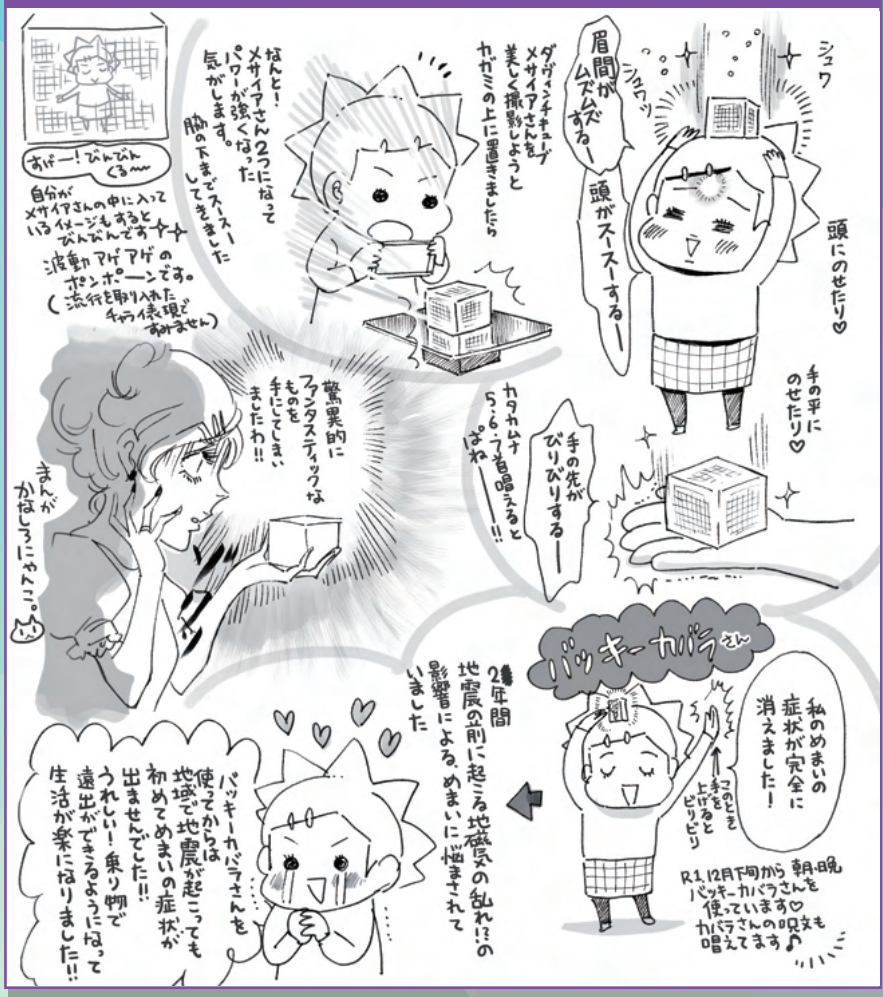 シュワ
シュワッ
頭にのせたり♡
眉間が
ムズムズ
するー
頭がスースーするー
ダヴィンチキューブ
メサイアさんを
美しく撮影しようと
カガミの上に置きましたら
なんと!
メサイアさん2つになって
パワーが強くなった
気がします。
脇の下までスースー
してきました
すげー!びんびん
くる〜
自分が
メサイアさんの中に入って
いるイメージもすると
びんびんです
波動アゲアゲの
ポンポーンです。
(流行を取り入れた
チャラい表現で
すみません)
手の平に
のせたり♡
手の先が
びりびりするー
カタカムナ
5.6.7首唱えると
ぱねーーー!!
驚異的に
ファンタスティックな
ものを
手にしてしまい
ましたわ!!
まんが
かなしろにゃんこ。
バッキーカバラさん
私のめまいの
症状が完全に
消えました!
このとき
手を
上げると
ビリビリ
R.1,12月下旬から 朝・晩
バッキーカバラさんを
使っています♡
カバラさんの呪文も
唱えてます♪
2年間
地震の前に起こる地磁気の乱れ!?の
影響による、めまいに悩まされて
いました
バッキーカバラさんを
使ってからは
地域で地震が起こっても
初めてめまいの症状が
出ませんでした!!
うれしい!乗り物で
遠出ができるようになって
生活が楽になりました!!